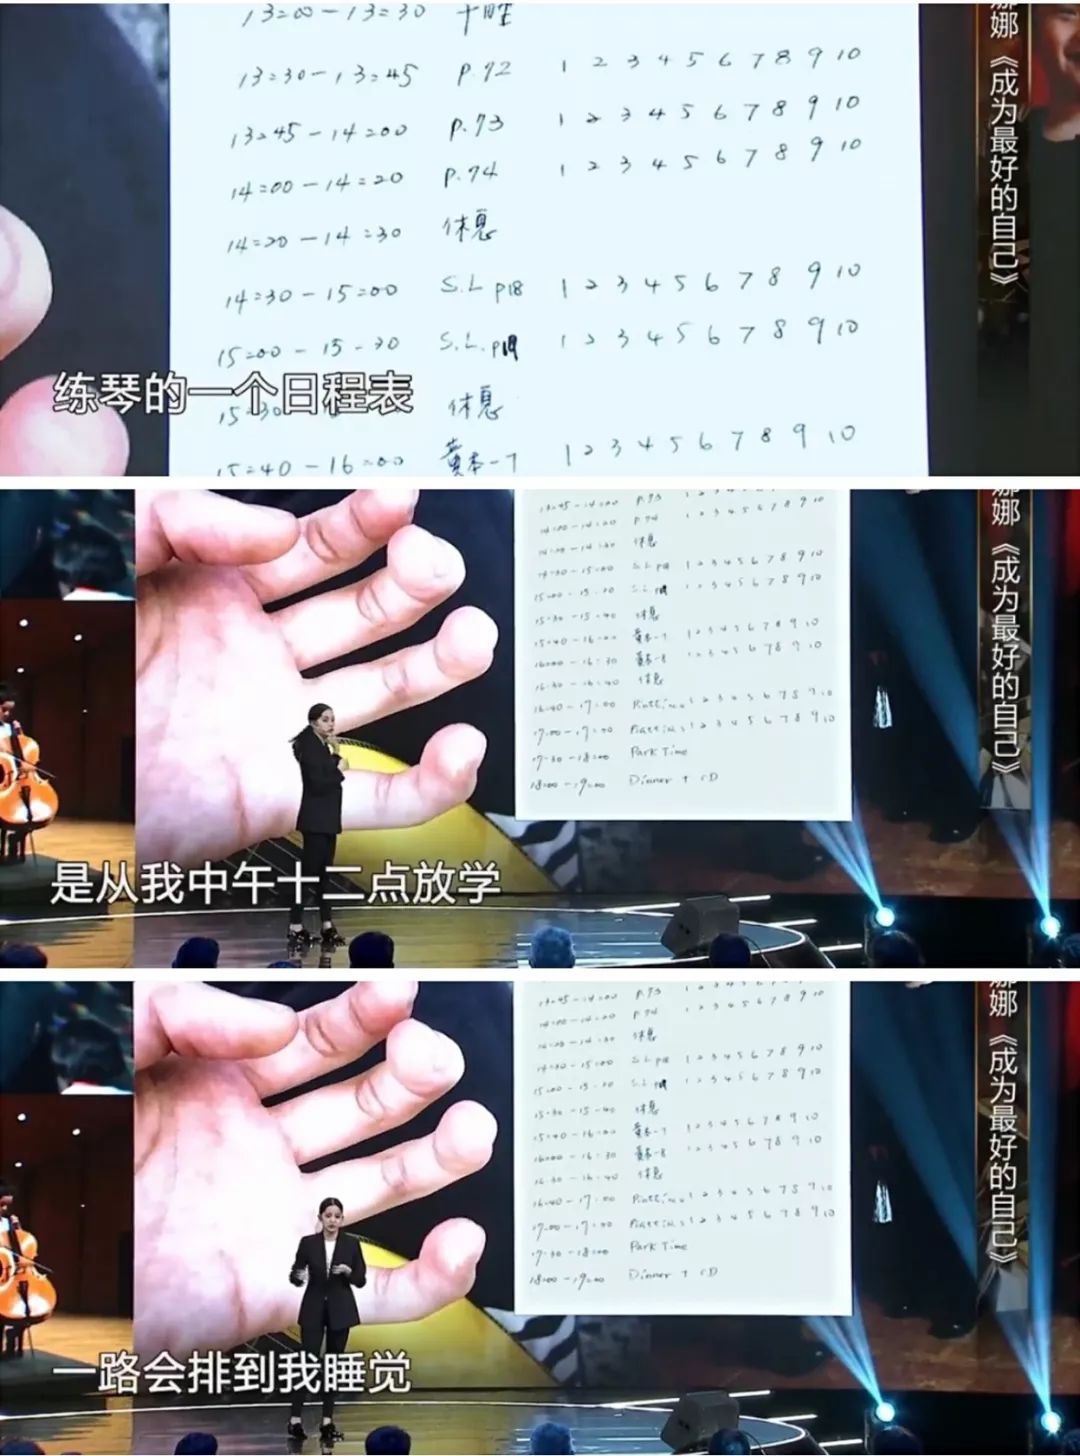 13=00-13=30 午睡
13=30-13=45 P.72 1 2 3 4 5 6 7 8 9 10
13=45-14=00 P.73 1 2 3 4 5 6 7 8 9 10
14=00-14=20 P.74 1 2 3 4 5 6 7 8 9 10
14=20-14=30 休息
14=30-15=00 S.L P18 1 2 3 4 5 6 7 8 9 10
15=00-15-30 S.L. P19 1 2 3 4 5 6 7 8 9 10
15=30 休息
15=40-16=00 黄本-7 1 2 3 4 5 6 7 8 9 10
练琴的一个日程表
娜《成为最好的自己》
13=45-14=00 P.73 1 2 3 4 5 6 7 8 9 10
14=00-14=20 P.74 1 2 3 4 5 6 7 8 9 10
14=20-14=30 休息
14=30-15=00 S.L P18 1 2 3 4 5 6 7 8 9 10
15=00-15-30 S.L. P19 1 2 3 4 5 6 7 8 9 10
15=30-15=40 休息
15=40-16=00 黄本-7 1 2 3 4 5 6 7 8 9 10
16=00-16=30 黄本-8 1 2 3 4 5 6 7 8 9 10
16=30-16=40 休息
16=40-17=00 1 2 3 4 5 6 7 8 9 10
17=00-17=30 1 2 3 4 5 6 7 8 9 10
17=30-18=00 Park Time
18=00-19=00 Dinner + CD
是从我中午十二点放学
娜《成为最好的自己》
13=45-14=00 P.73
14=00-14=20 P.74 1 2 3 4 5 6 7 8 9 10
14=20-14=30 休息
14=30-15=00 S.L P18 1 2 3 4 5 6 7 8 9 10
15=00-15-30 S.L. P19 1 2 3 4 5 6 7 8 9 10
15=30-15=40 休息
15=40-16=00 黄本-7 1 2 3 4 5 6 7 8 9 10
16=00-16=30 黄本-8 1 2 3 4 5 6 7 8 9 10
16=30-16=40 休息
16=40-17=00 1 2 3 4 5 6 7 8 9 10
17=00-17=30 1 2 3 4 5 6 7 8 9 10
17=30-18=00 Park Time
18=00-19=00 Dinner + CD
一路会排到我睡觉
娜《成为最好的自己》